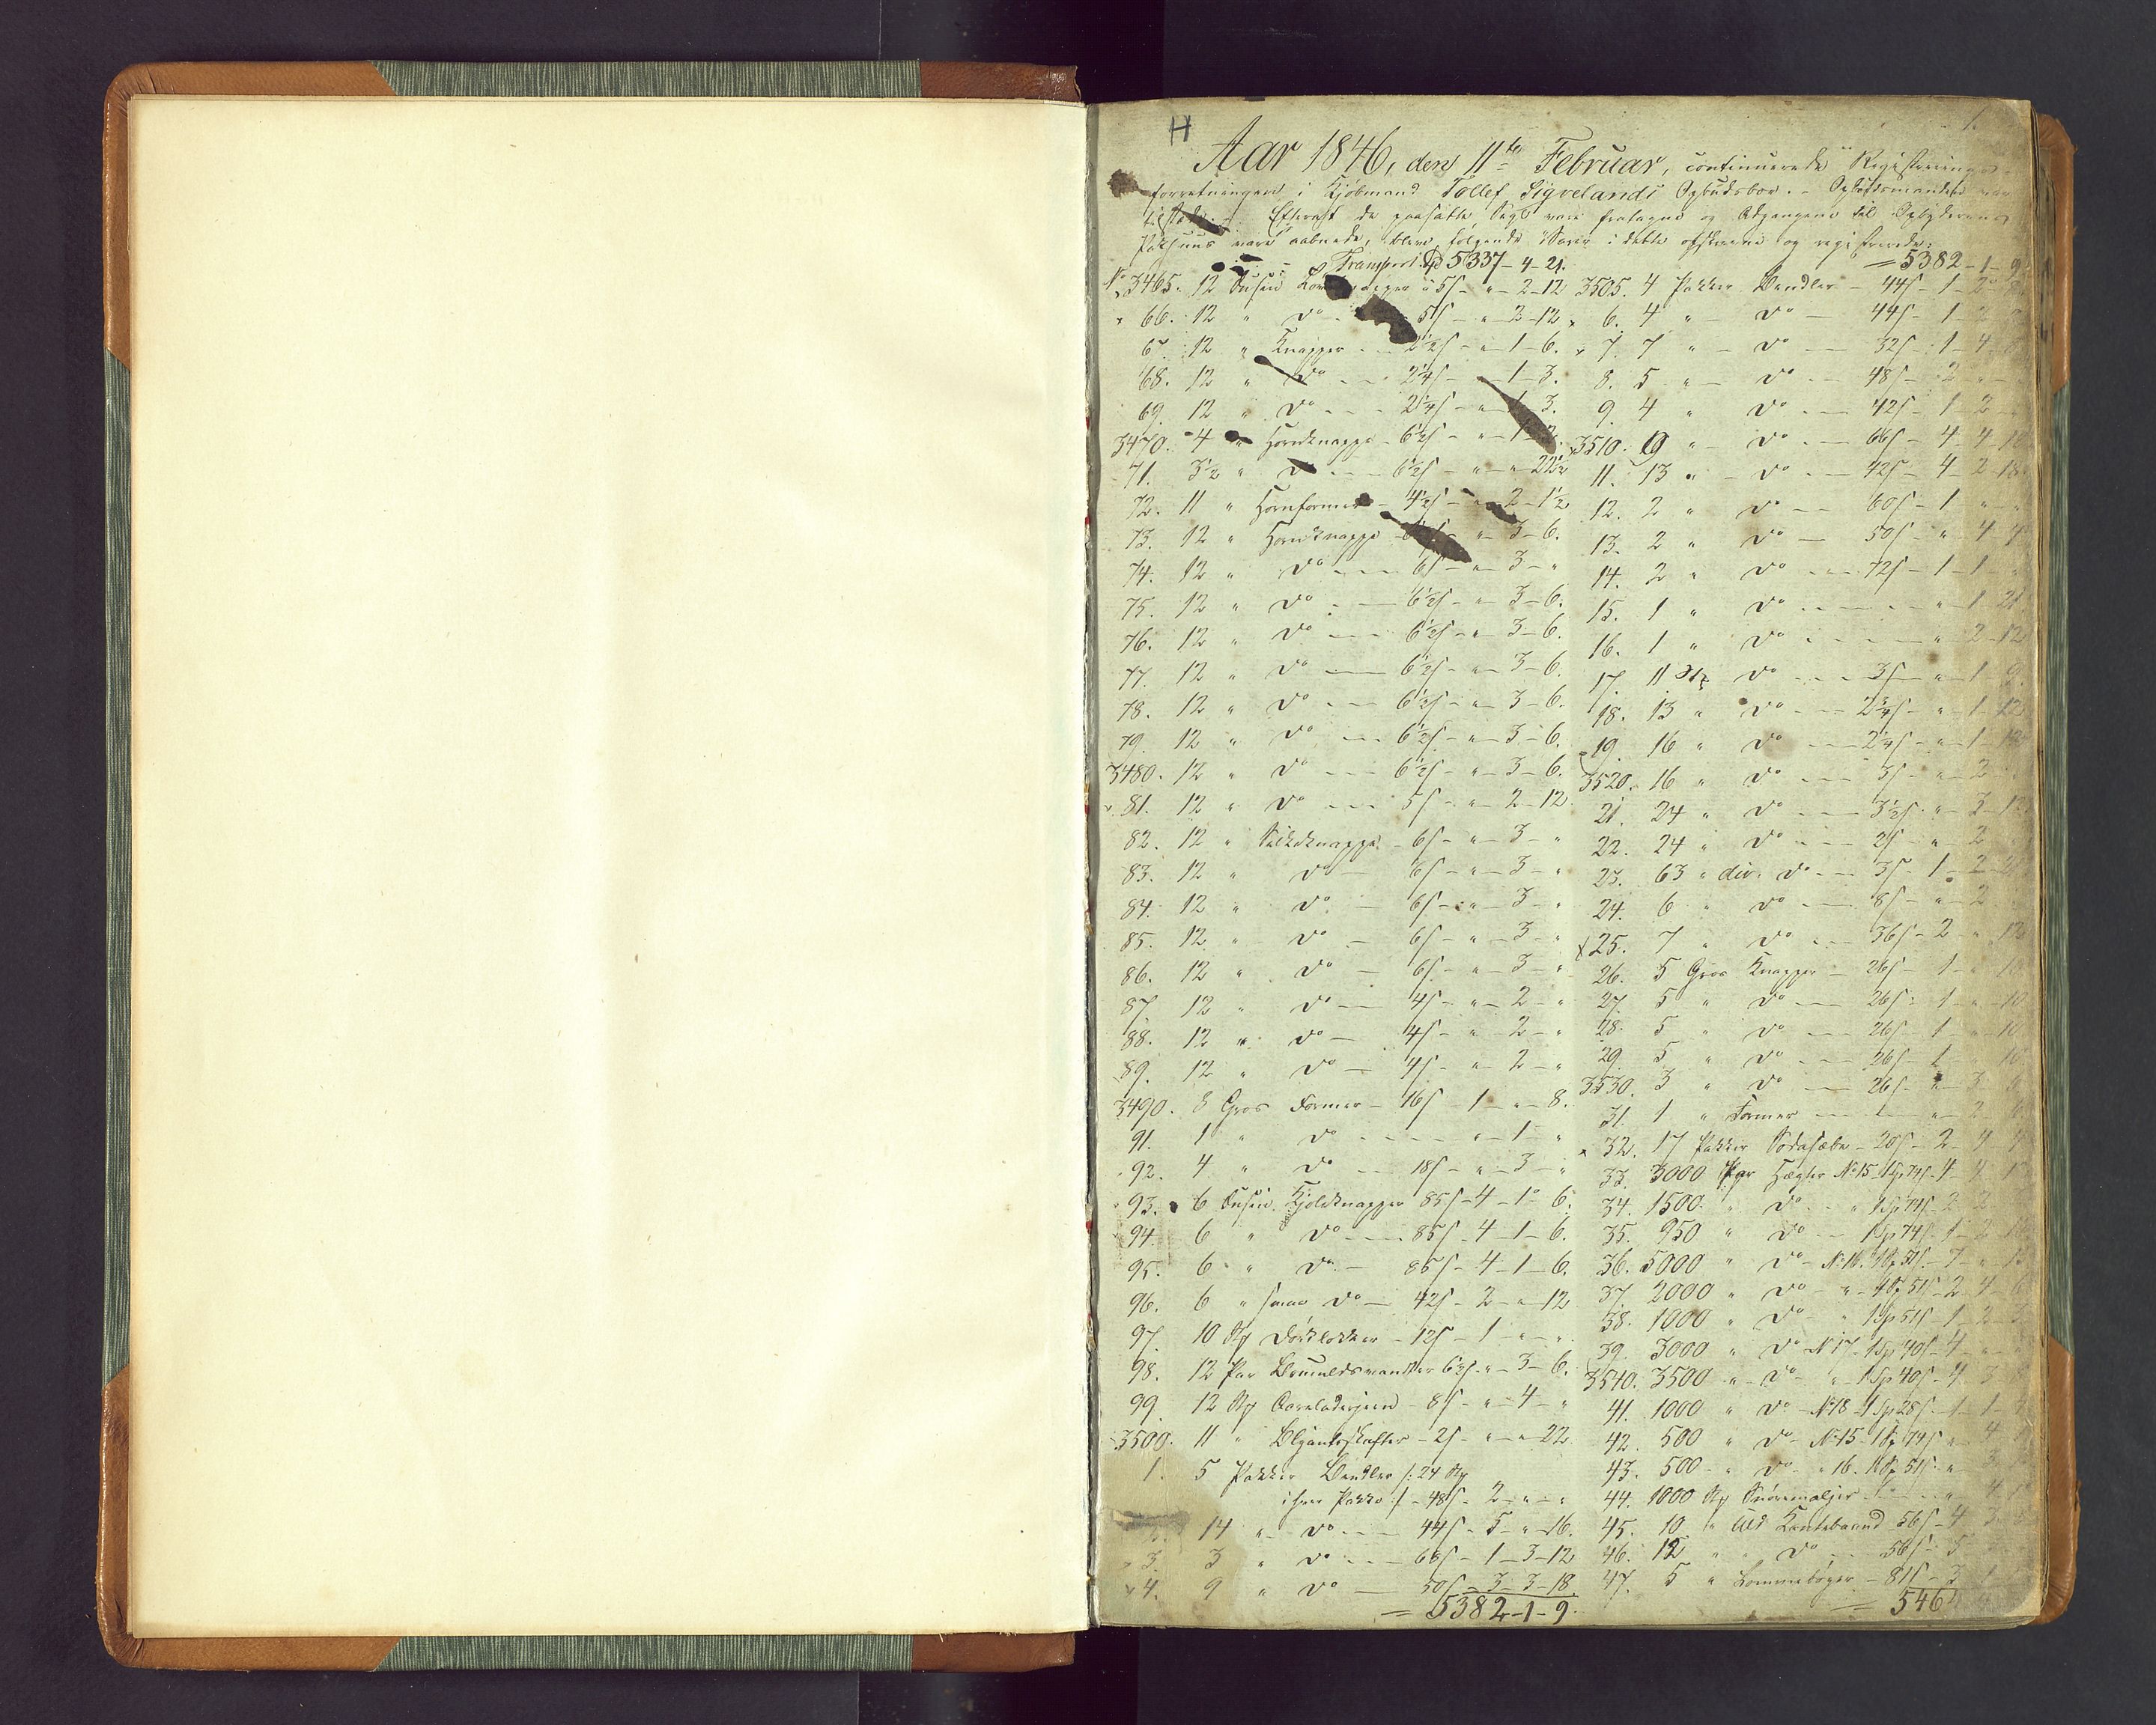 H
1.
Aar 1846, den 11te Februar, continuerede Registrerings-
forretningen i Kjöbmand Tollef Sigvelands Opbudsboe. - Opbudsmanden var
tilstede. Efterat de paasatte Segl vare fratagne og Adgangene til Opbyderens
Pakhuus vare aabnede, bleve følgende Varer i dette og registrerede:
Transport Sp 5337-4-21.
No 3465. 12 Dusin 5s - " - 2-12
66. 12 " do 5s - " 2-12
12 " Knapper 2½s - " - 1-6.
68. 12 " do 2¼s - 1-3.
69. 12 " do 2¼s - " 1 3.
3470. 4 " Hornknappe - 6½s - " - 1-2.
71. 3½ " do 6½s - " - " 22¾
72. 11 " Hornformer - 4½s - " 2-1½
73. 12 " Hornknappe " - 3-6.
74. 12 " do 6s - " - 3 - "
75. 12 " do 6½s - " 3-6.
76. 12 " do 6½s - " 3-6.
77. 12 " do 6½s - " - 3-6.
78. 12 " do 6½s - " - 3-6.
79. 12 " do 6½s - " - 3-6.
3480. 12 " do 6½s - " - 3-6.
81. 12 " do 5s - " - 2-12
82. 12 " Silkeknappe 6s - " - 3 - "
83. 12 " do 6s - " - 3 - "
84. 12 " do 6s - " - 3 - "
85. 12 " do 6s - " - 3 - "
86. 12 " do 6s - " - 3 - "
87. 12 " do 4s - " - 2 - "
88. 12 " do 4s - " 2 - "
89. 12 " do 4s - " 2 - "
3490. 8 Gros Former - 16s 1 - " 8.
91. 1 " do " - 1 - "
92. 4 " do 18s - " - 3 - "
93. 6 Dusin Kjoleknapper 85s - 4 - 1 - 6.
94. 6 " do 85s - 4 - 1 - 6.
95. 6 " do 85s - 4 - 1 - 6.
96. 6 " smaa do 42s - 2 - " 12
97. 10 St Dörklokker - 12s - 1 - " - "
98. 12 Par 6½s - " - 3 - 6.
99. 12 St 8s - " - 4 - "
3500. 11 " Blyantsskafter - 2s - " - " 22
1. 5 Pakker Bendler /: 24 St
i hver Pakke :/ - 48s - 2 - " - "
14 " do 44s - 5 - " - 16.
3. 3 " do 68s - 1 - 3-12
4. 9 " do 50s - 3 - 3-18.
= 5382-1-9.
= 5382-1-9
3505. 4 Pakker Bendler - 44s - 1 - 2
6. 4 " do 44s - 1 2
7. 7 " do 32s - 1 - 4
8. 5 " do 48s - 2 -
9. 4 " do 42s - 1 2
3510. 9 " do 66s - 4 - 4
11. 13 " do 42s - 4 - 2 - 18
12. 2 " do 60s - 1 "
13. 2 " do 50s - " 4 4
14. 2 " do 72s - 1 - 1
15. 1 " do " - 1 21
16. 1 " do " 2-12
17. 11 St do 3s - " - 1 9.
18. 13 " do 2¾s - " - 1 - 12
19. 16 " do 2¼s - " - 1 - 12
3520. 16 " do 3s - " - 2
21. 24 " do 3½s - " - 3 - 12
22. 24 " do 2s - " - 2
23. 63 " div. do 3s - 1 - 2
24. 6 " do 8s - " - 2
25. 7 " do 36s - 2 - " 12
26. 5 Gros Knapper - 26s - 1 - " 10
27. 5 " do 26s - 1 - " - 10
28. 5 " do 26s - 1 - " 10
29. 5 " do 26s - 1 - " 10
3530. 3 " do 26s - " - 3
31. 1 " Former " - 2
32. 17 Pakker Sodasæbe - 20s - 2 - 4
33. 3000 Par Hægter No 15 - 1Sp 74s - 4 - 4
34. 1500 " do " 1Sp 74s - 2 2
35. 950 " do 1Sp 74s - 1 - 2
36. 5000 " do No 16. 1Sp 51s - 7 - "
37. 2000 " do " - 1Sp 51s - 2 - 4 - 6
38. 1000 " do " 1Sp 51s - 1 - 2 - 3
39. 3000 " do No 17. 1Sp 40s - 4 -
3540. 3500 " do " - 1Sp 40s - 4 3
41. 1000 " do No 18 - 1Sp 28s - 1 - 1
42. 500 " do No 15 - 1Sp 74s " 4
43. 500 " do " 16. 1Sp 51s - " 3
44. 1000 St Snöremaljer 4
45. 10 " Uld Kantebaand 56s - 4
46. 12 " " do 56s - 5
47. 5 " Lommebøger - 81s - 3
= 546